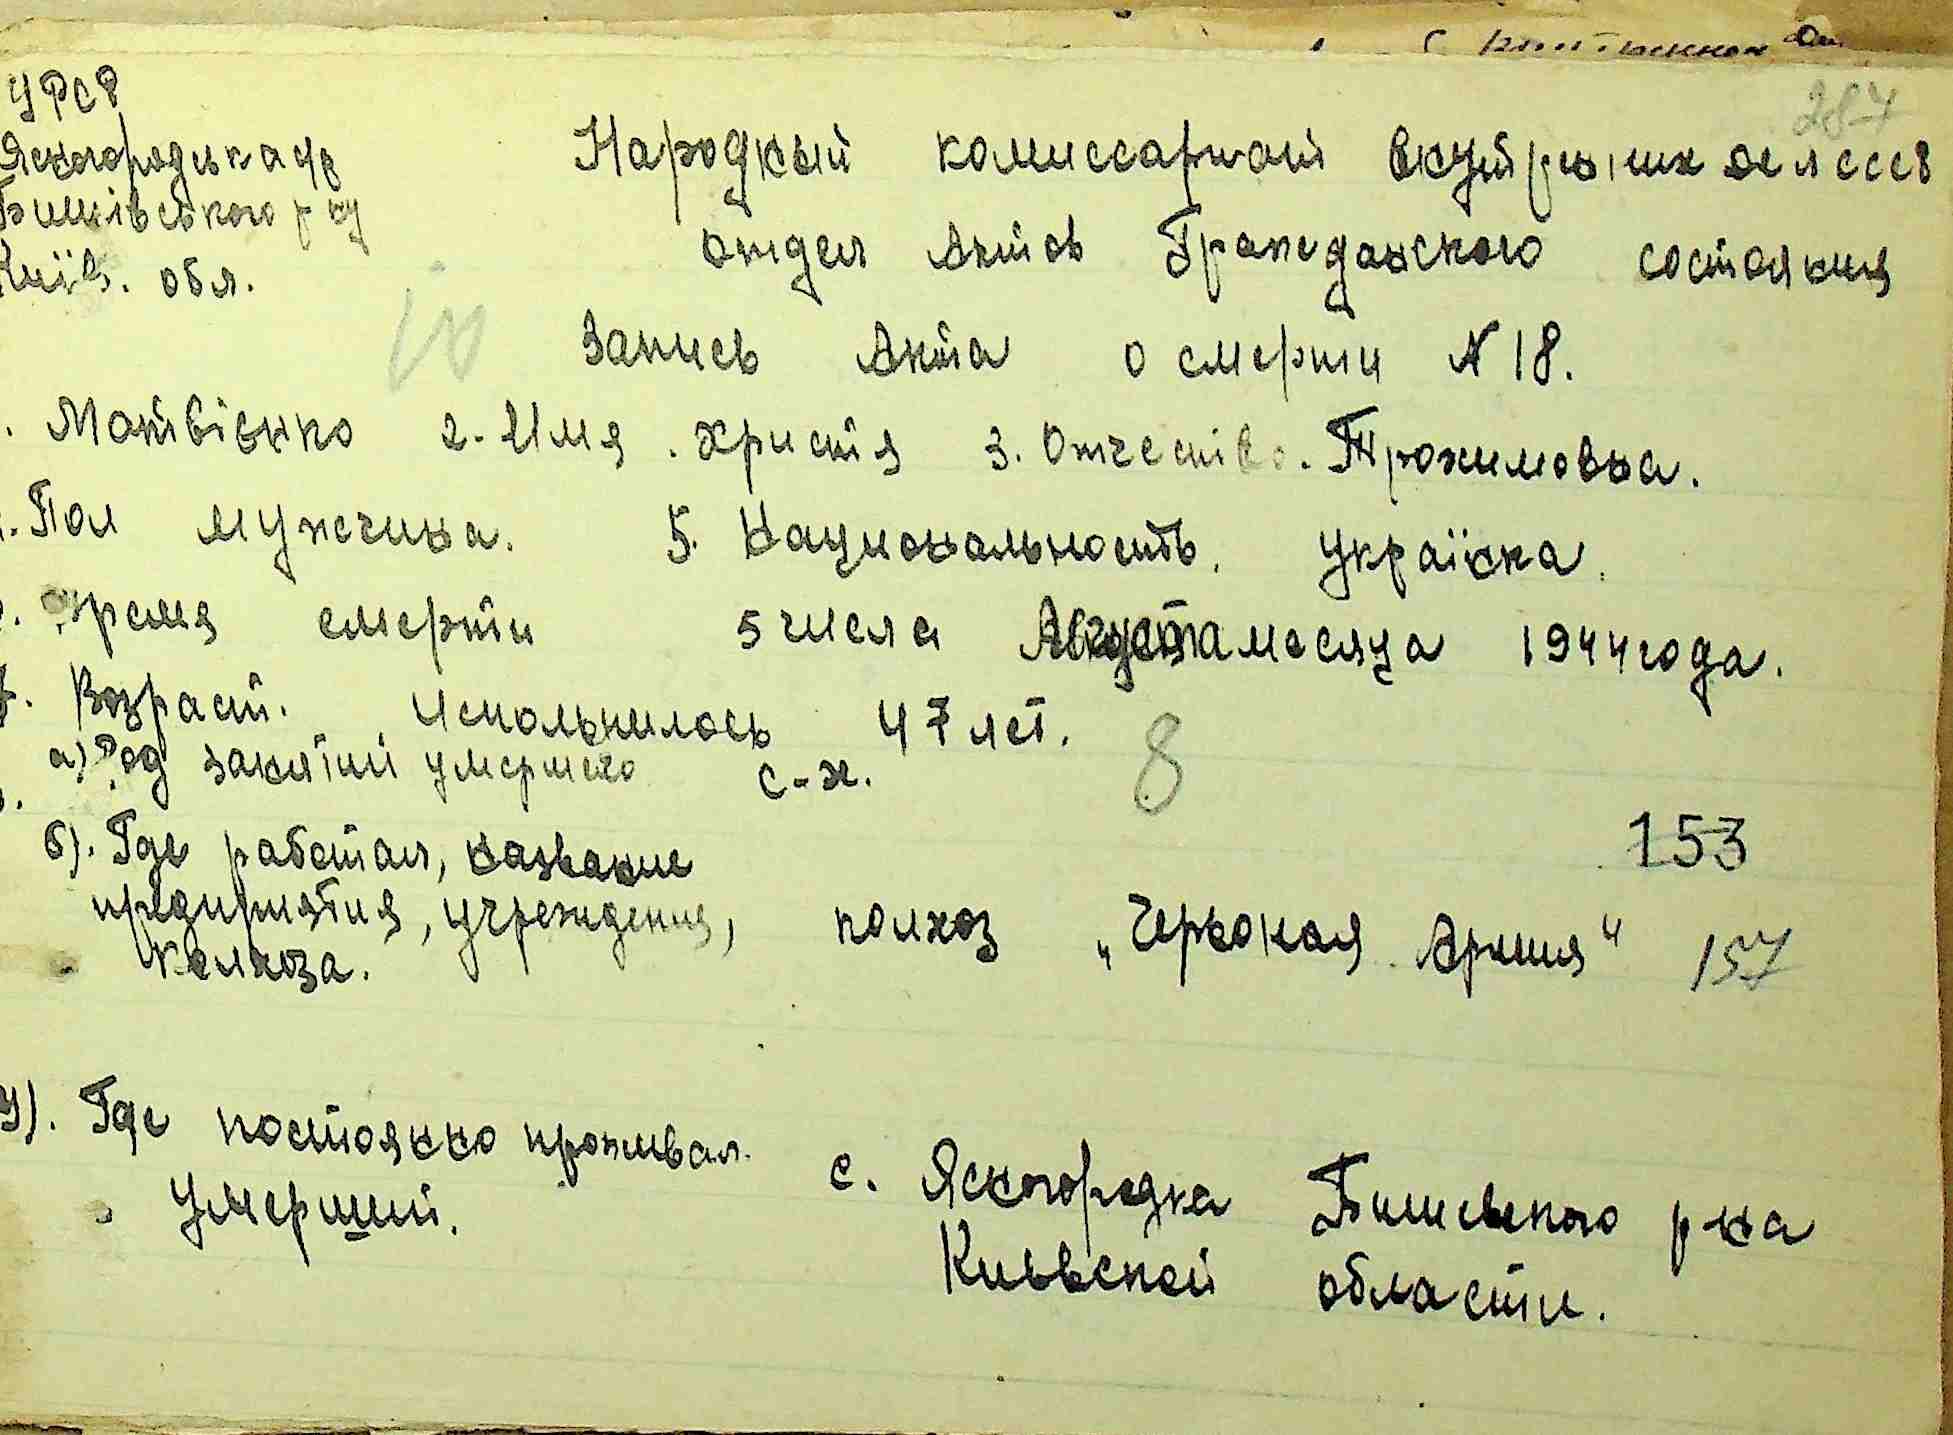 287
УРСР
Яскогородська с/р
Бишівського р-ну
Київ. обл.
Народкый комиссариат внутрених дел СССР
отдел Актов Гражданского состояния
Запись Акта о смерти N 18.
. Матвієнко 2. Имя. Христя 3. Отчество. Трохимовна.
. Пол мужчина. 5. Национальность. Українка.
. время смерти 5 числа Августа месяца 1944 года.
7. Возраст. Исполнилось 47 лет.
а) Род занятий умершего с-х.
8
б). Где работал, название
предприятия, учреждения,
колхоза.
колхоз „Червоная Армия"
153
157
9). Где постоянно проживал
умерший.
с. Яскогородка Бишевского р-на
Киевской области.